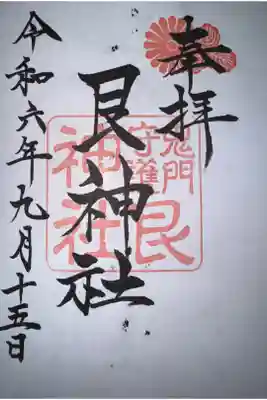 奉拝
鬼門
守護
艮
神社
艮神社
令和六年九月十五日